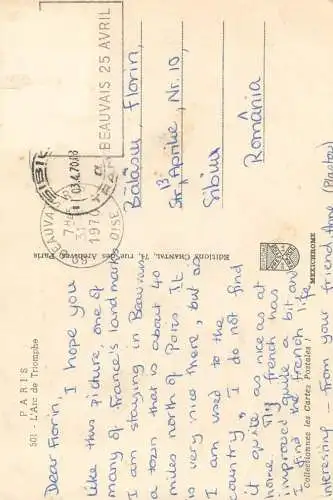 PARIS
501 - L'Arc de Triomphe
Dear Florin,
I hope you
like this picture, one of
many of France's landmarks
I am staying in Beauvais
a town that is about 40
miles north of Paris It
is very nice there, but as
I am used to the
country, I do not find
it quite as nice as at
home. My french has
improved quite a bit and
I find the french life
interesting - from your friend, Anne
Editions CHANTAL, 74, rue des Archives, Paris
MEXICHROME
Collectionnez les Cartes Postales :
BEAUVAIS 25 AVRIL
BEAUVAIS
OISE
31
1970
SIBIU
03.4.70
Bălașu Florin,
Str. 13 Aprilie, Nr. 10,
Sibiu
România